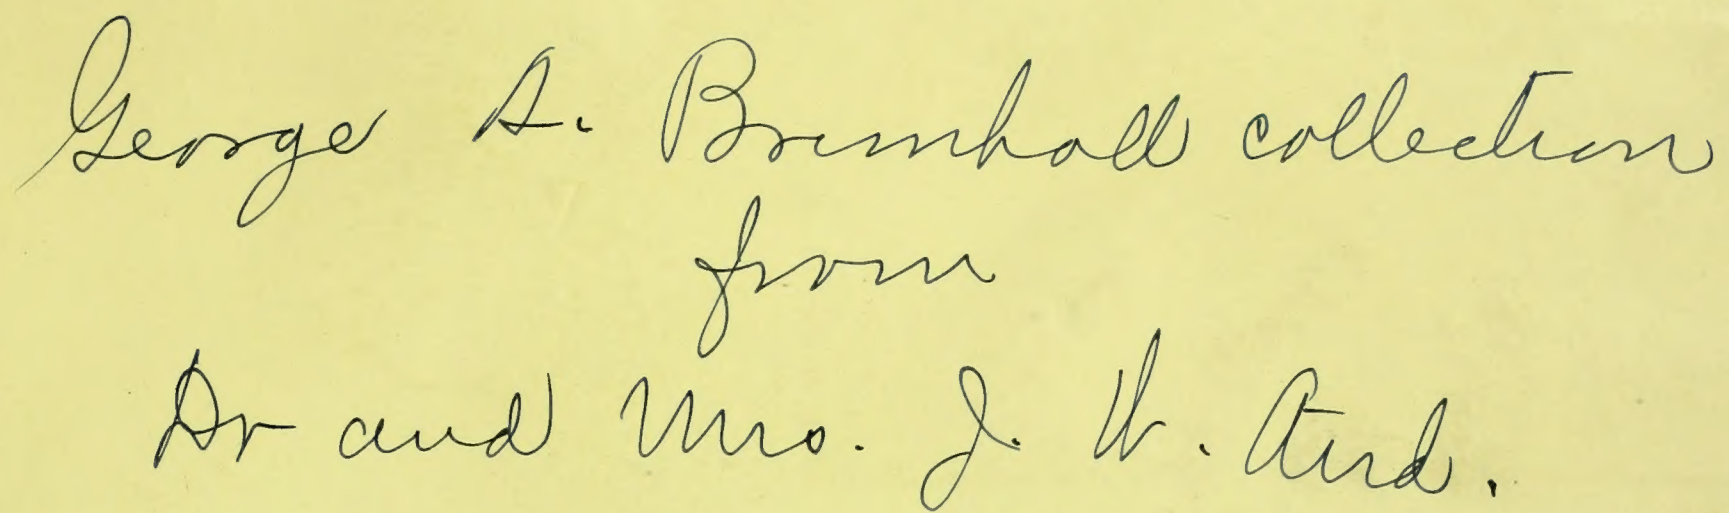 George S. Brimhall collection
from
Dr and Mrs. J. W. Aird.